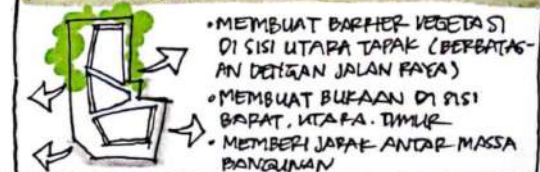 • MEMBUAT BARRIER VEGETASI
DI SISI UTARA TAPAK (BERBATAS-
AN DENGAN JALAN RAYA)
• MEMBUAT BUKAAN DI SISI
BARAT, UTARA, TIMUR
• MEMBERI JARAK ANTAR MASSA
BANGUNAN